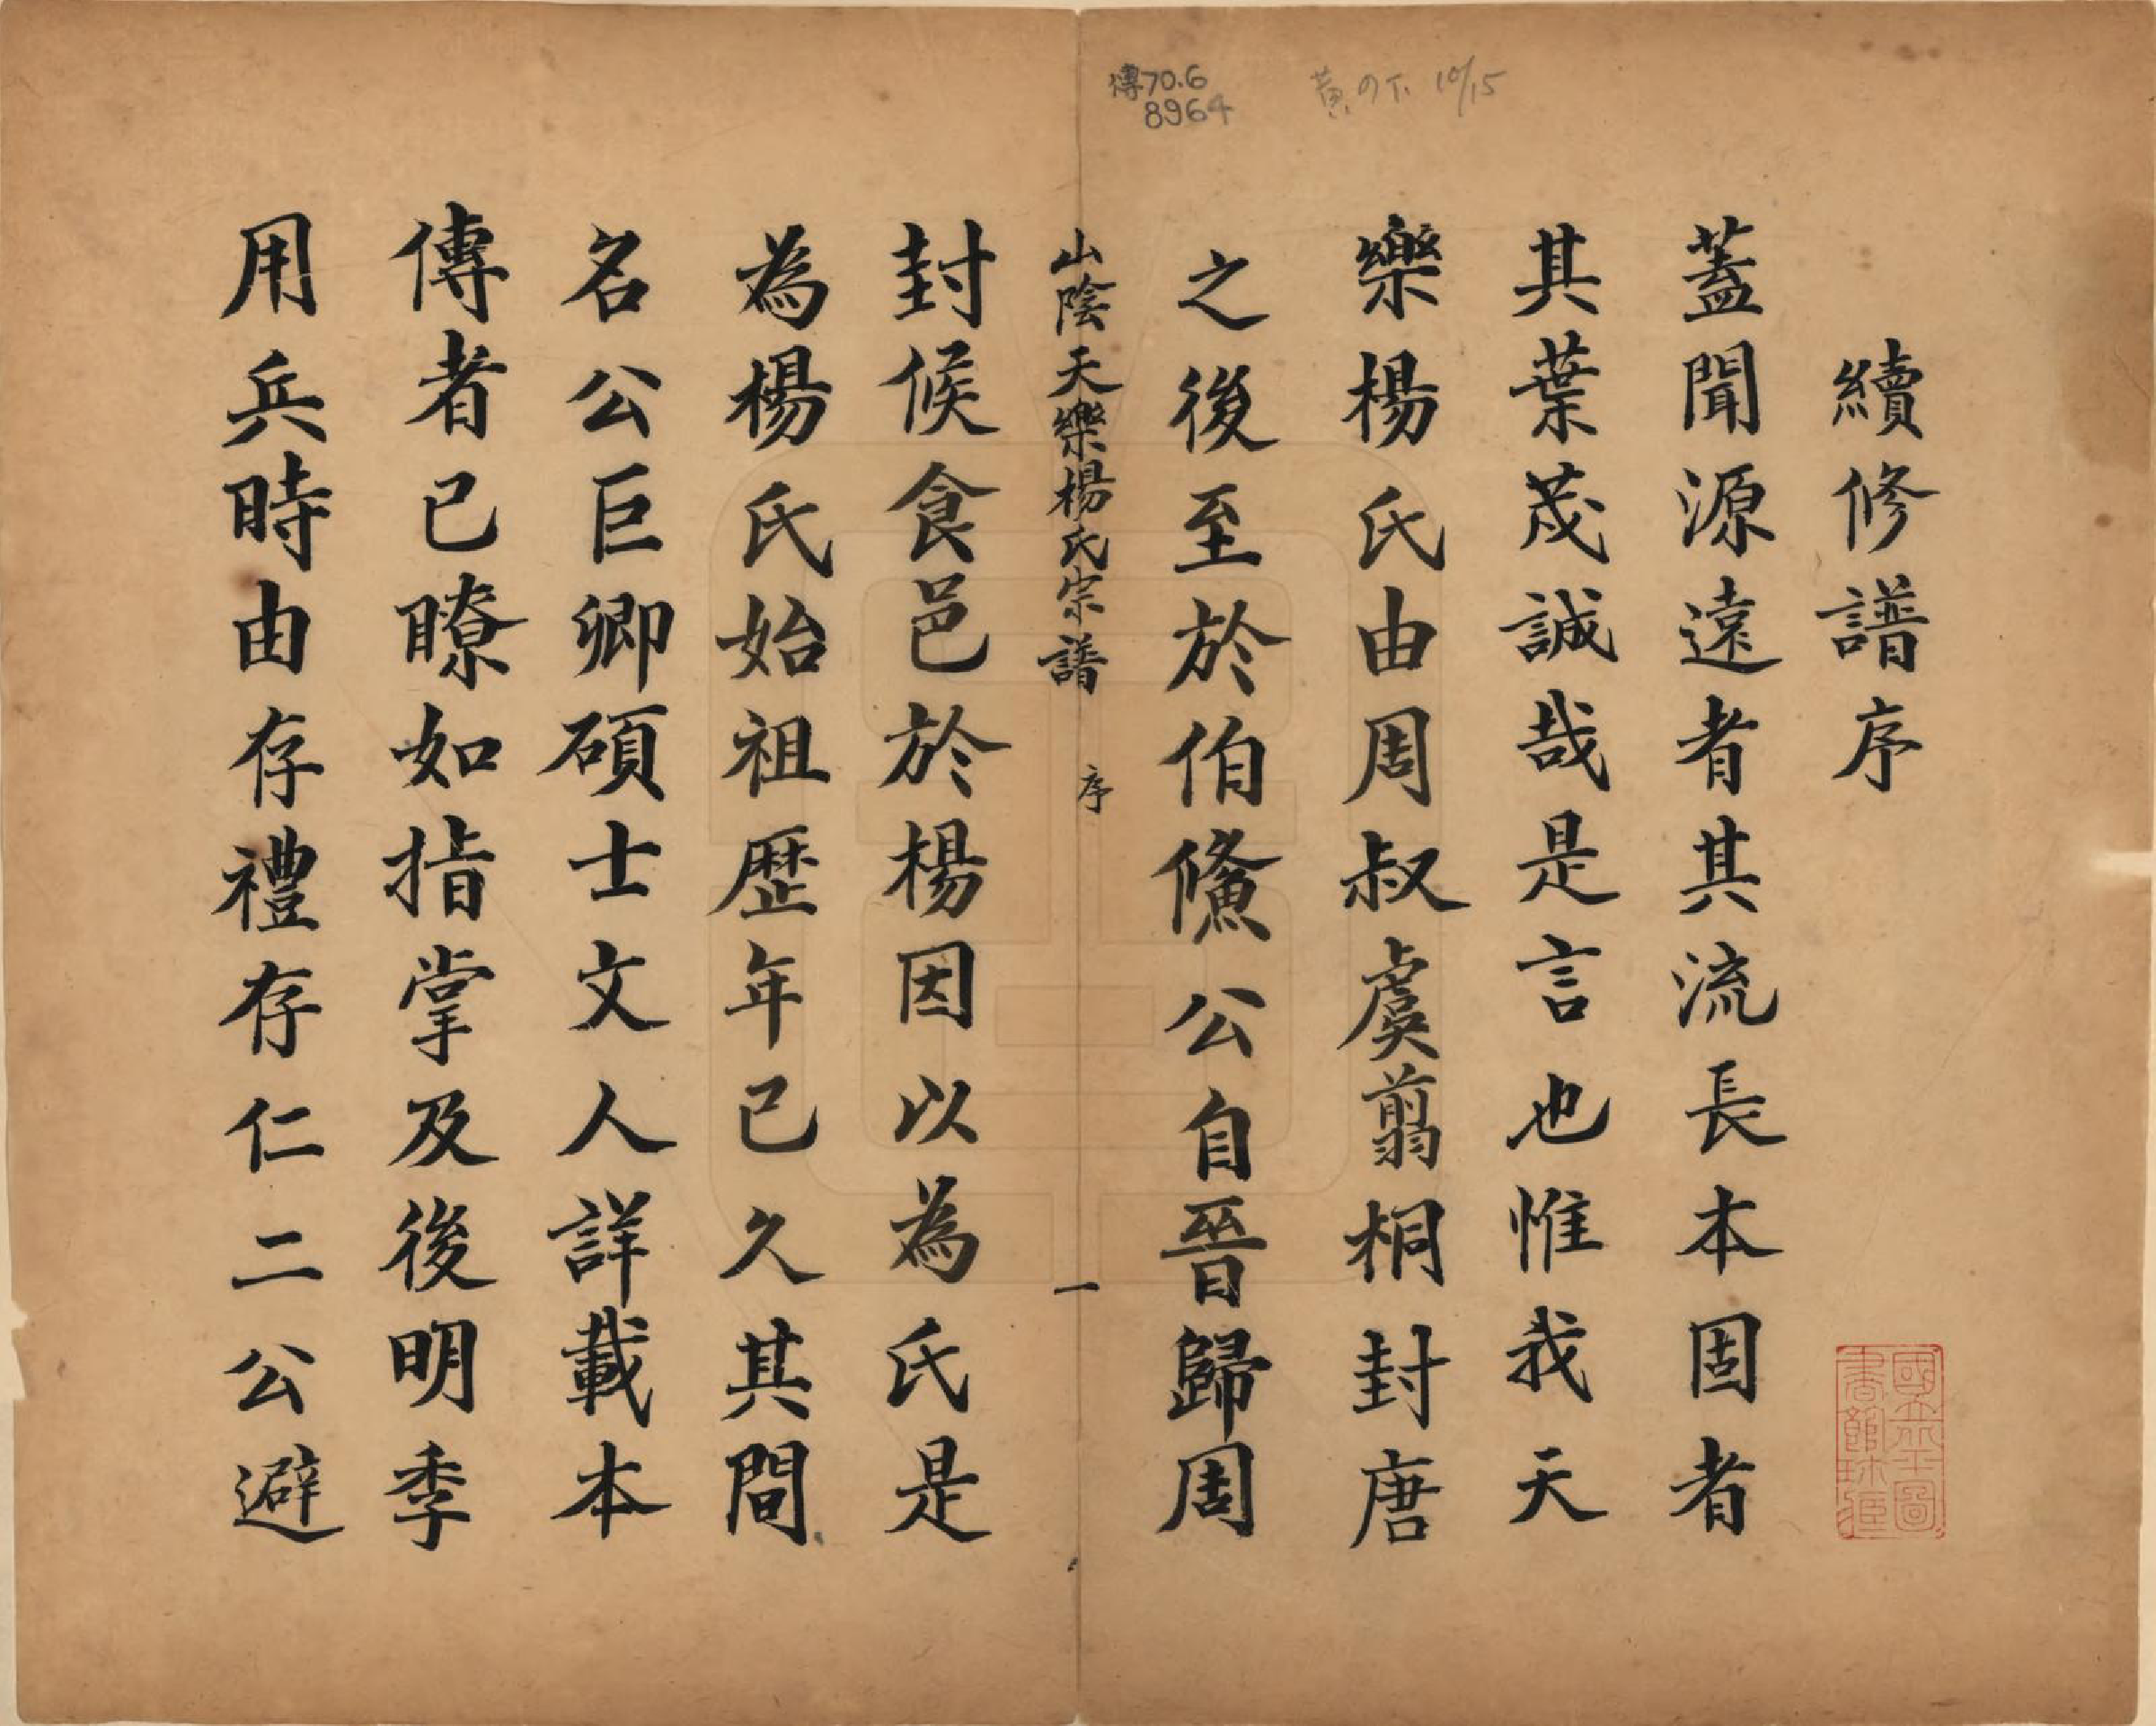 傳70.6
8964
續修譜序
蓋聞源遠者其流長本固者
其葉茂誠哉是言也惟我天
樂楊氏由周叔虞翦桐封唐
之後至於伯僑公自晉歸周
山陰天樂楊氏宗譜 序 一
封候食邑於楊因以為氏是
為楊氏始祖歷年已久其間
名公巨卿碩士文人詳載本
傳者已瞭如指掌及後明季
用兵時由存禮存仁二公避